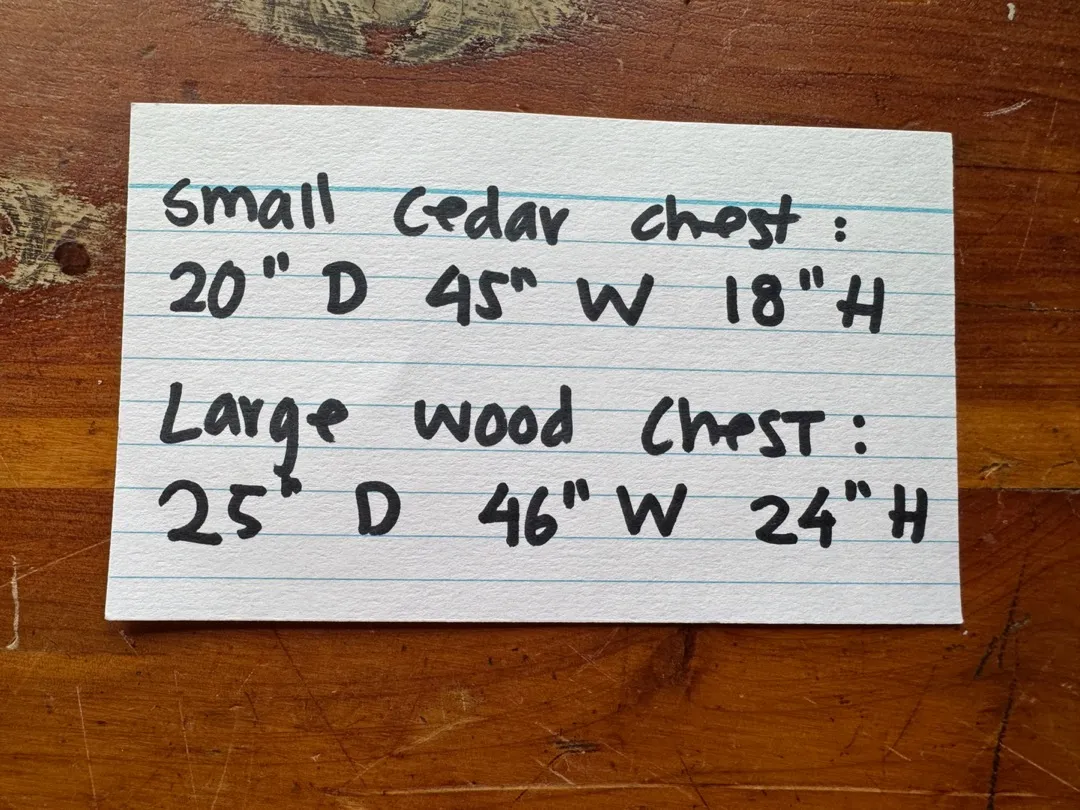 Small Cedar chest:
20" D 45" W 18" H
Large wood ChesT:
25" D 46" W 24" H